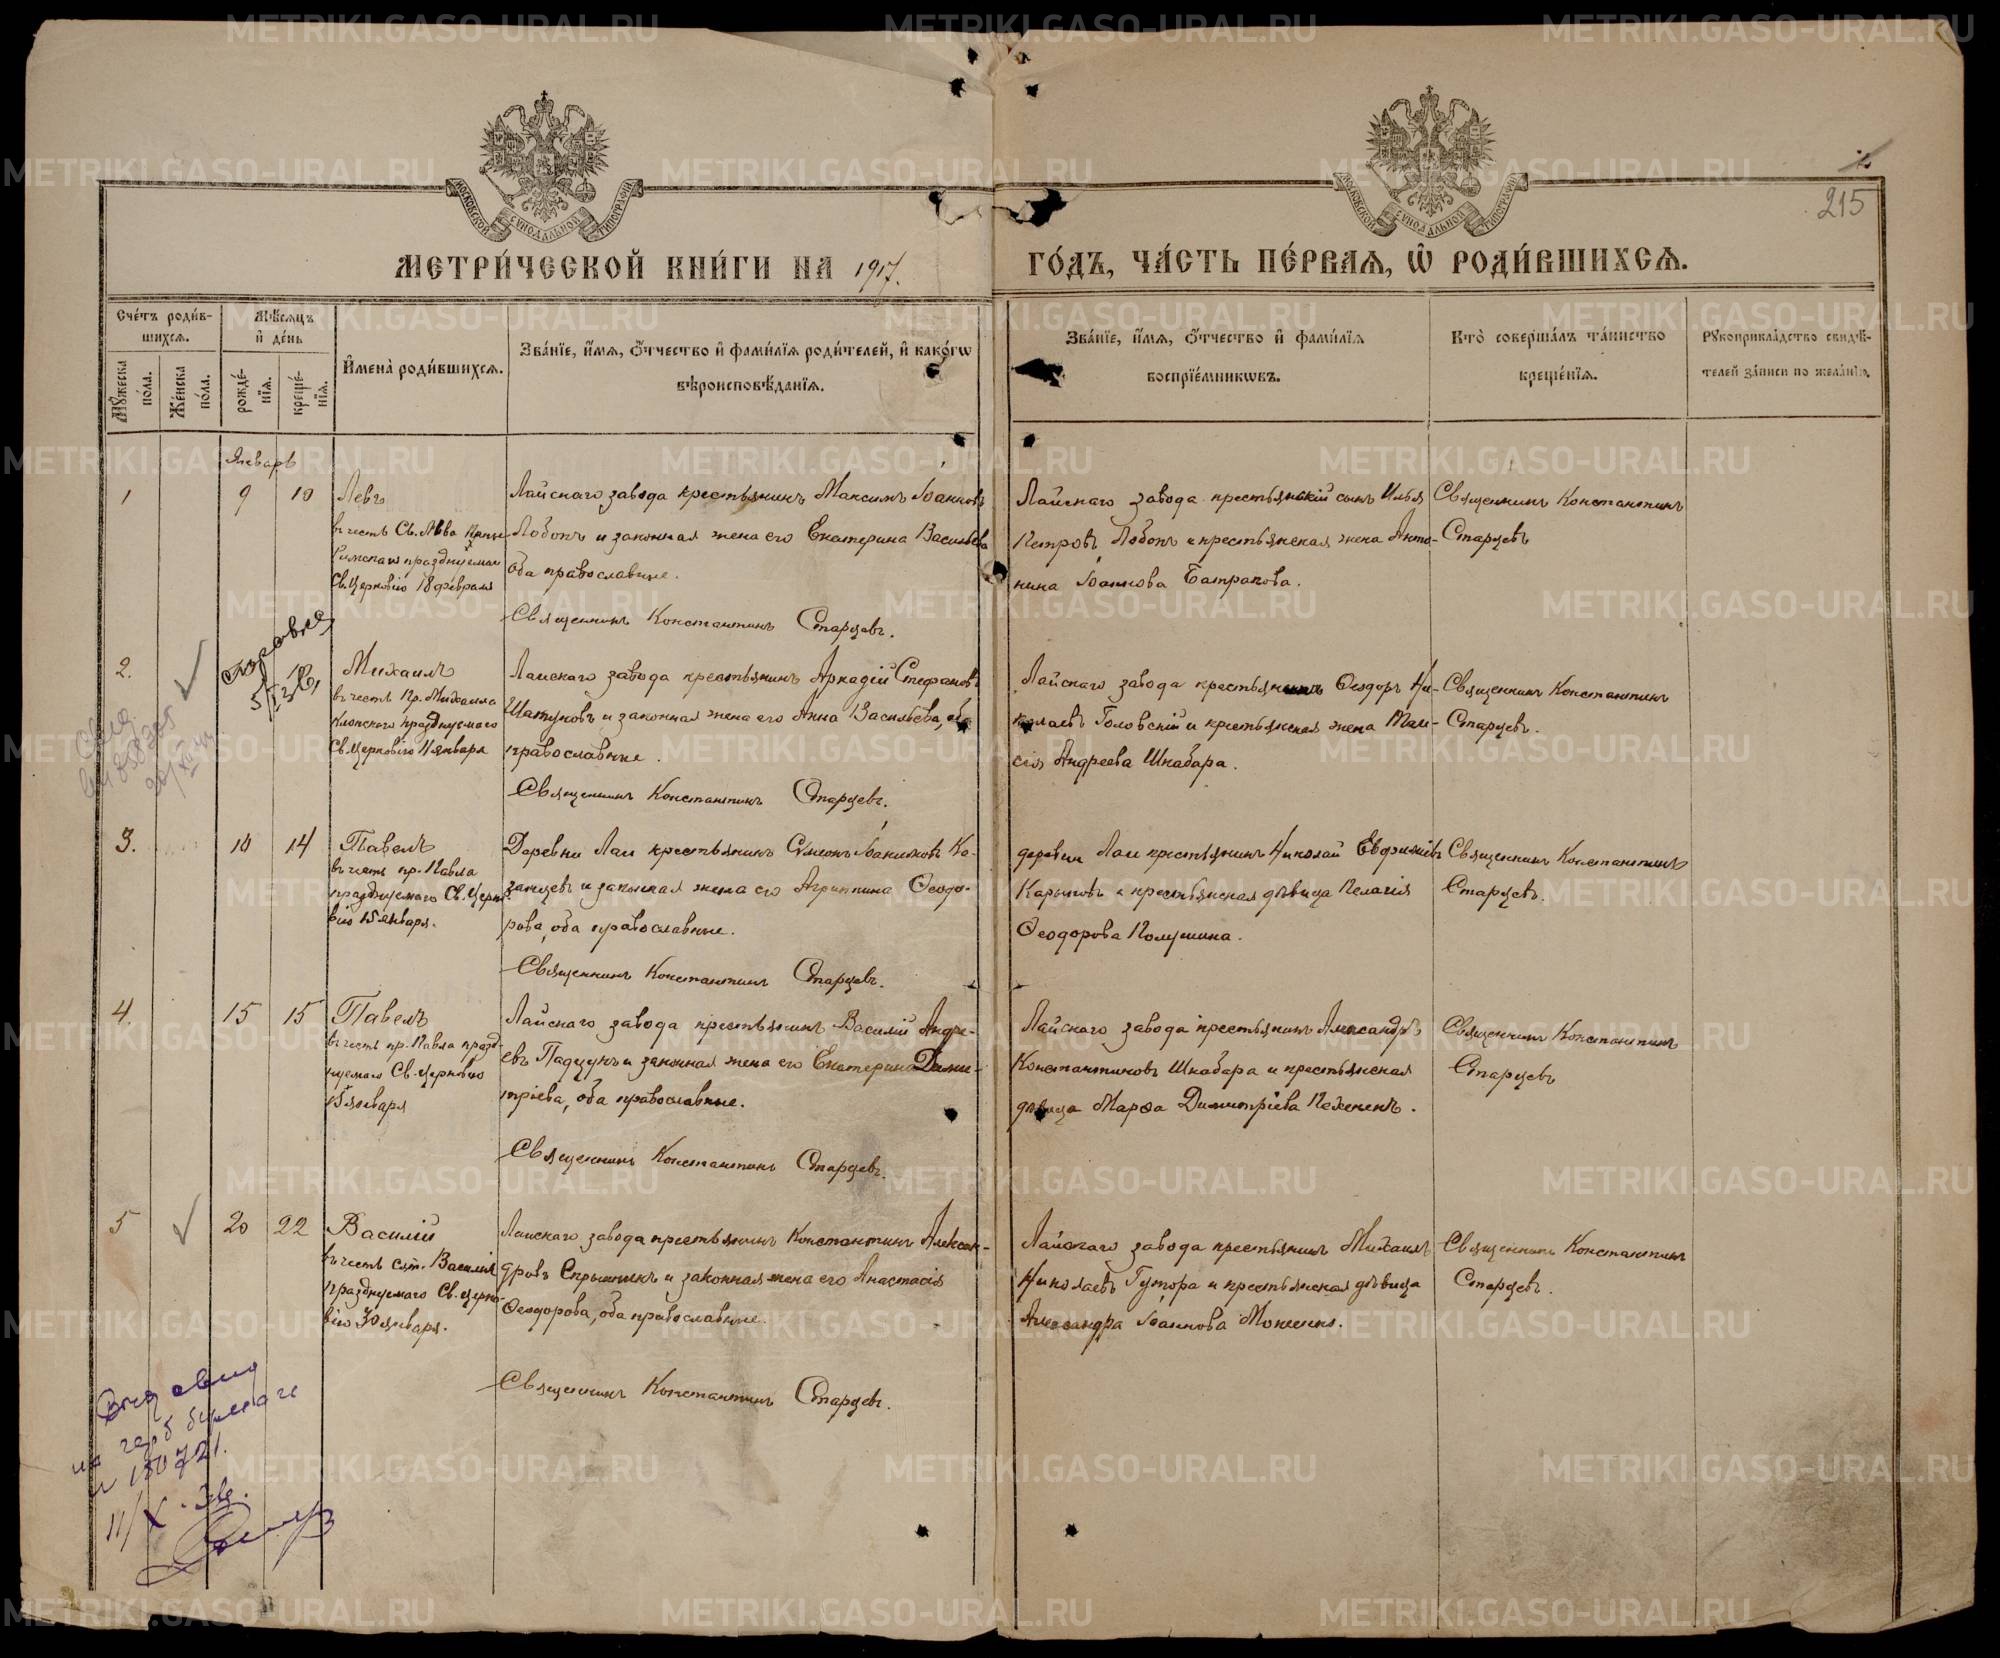 215
МОСКОВСКОЙ СѴНОДАЛЬНОЙ ТИПОГРАФІИ
МОСКОВСКОЙ СѴНОДАЛЬНОЙ ТИПОГРАФІИ
МЕТРИ́ЧЕСКОЙ КНИ́ГИ НА 1917.
ГО́ДЪ, ЧА́СТЬ ПЕ́РВАЯ, Ѡ҆ РОДИ́ВШИХСѦ.
Сче́тъ роди́в-
шихсѧ.
Му́жеска по́ла.
Же́нска по́ла.
Мѣ́сѧцъ
и҆ де́нь
рожде́-
нїѧ.
креще́-
нїѧ.
И҆мена̀ роди́вшихсѧ.
Зва́нїе, и҆́мѧ, ѻ҆́тчество и҆ фами́лїѧ роди́телей, и҆ како́гѡ
вѣроисповѣ́данїѧ.
Зва́нїе, и҆́мѧ, ѻ҆́тчество и҆ фами́лїѧ
воспрїе́мникѡвъ.
Кто̀ соверша́лъ та́инство
креще́нїѧ.
Рукоприкла́дство свидѣ́-
телей за́писи по жела́нїю.
Январь
1
9
10
Левъ
въ честь Св. Льва Папы
Римскаго празднуемаго
Св. Церковію 18 февраля
Лайскаго завода крестьянинъ Максимъ Іоанновъ
Лобокъ и законная жена его Екатерина Васильева
оба православные.
Священникъ Константинъ Старцевъ.
Лайскаго завода крестьянскій сынъ Илья
Петровъ Лобокъ и крестьянская жена Анто-
нина Іоаннова Батракова.
Священникъ Константинъ
Старцевъ
справка
2.
10
Михаилъ
въ честь Пр. Михаила
Клопскаго празднуемаго
Св. Церковію 11 января
Лайскаго завода крестьянинъ Аркадій Стефановъ
Шатуновъ и законная жена его Анна Васильева, оба
православные.
Священникъ Константинъ Старцевъ.
Лайскаго завода крестьянинъ Ѳеодоръ Ни-
колаевъ Головскій и крестьянская жена Таи-
сія Андреева Шкабара.
Священникъ Константинъ
Старцевъ.
3.
10
14
Павелъ
въ честь пр. Павла
празднуемаго Св. Церко-
вію 15 января.
Деревни Лаи крестьянинъ Сѵмеонъ Іоанновъ Ка-
занцевъ и законная жена его Агриппина Ѳеодо-
рова, оба православные.
Священникъ Константинъ Старцевъ.
деревни Лаи крестьянинъ Николай Евфиміевъ
Карыповъ и крестьянская дѣвица Пелагія
Ѳеодорова Полушина.
Священникъ Константинъ
Старцевъ.
4.
15
15
Павелъ
въ честь пр. Павла празд-
нуемаго Св. Церковію
15 января
Лайскаго завода крестьянинъ Василій Андре-
евъ Падуцукъ и законная жена его Екатерина Дими-
тріева, оба православные.
Священникъ Константинъ Старцевъ.
Лайскаго завода крестьянинъ Александръ
Константиновъ Шкабара и крестьянская
дѣвица Марѳа Димитріева Пехенекъ.
Священникъ Константинъ
Старцевъ
5
20
22
Василій
въ честь свт. Василія
празднуемаго Св. Церко-
вію 30 января.
Лайскаго завода крестьянинъ Константинъ Алексан-
дровъ Скрыпникъ и законная жена его Анастасія
Ѳеодорова, оба православные.
Священникъ Константинъ Старцевъ.
Лайскаго завода крестьянинъ Михаилъ
Николаевъ Гутора и крестьянская дѣвица
Александра Іоаннова
Священникъ Константинъ
Старцевъ.
на герб бумаге
150721.
11/X
METRIKI.GASO-URAL.RU